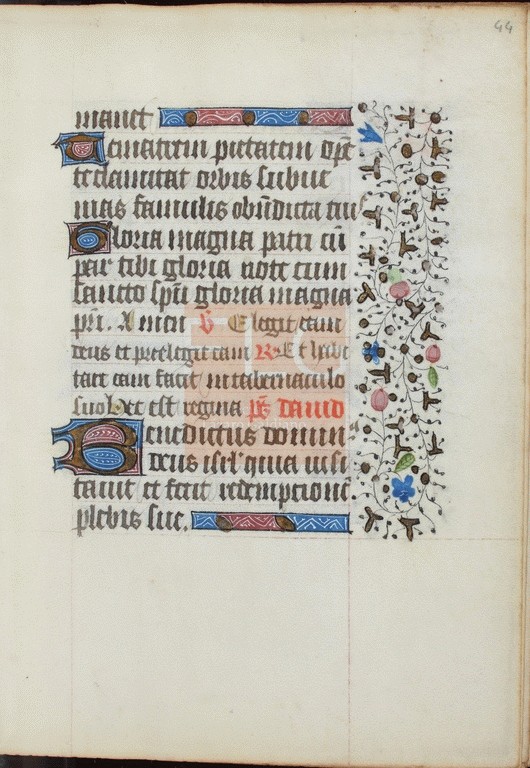 44
manet
Tu natem pietatem opē
te clamitat orbis subue
mas famulis obūdita tuis
Gloria magna patri cū
par tibi gloria note cum
sancto spū gloria magna
pri. Amen ℣ Elegit eam
deus et preelegit eam ℟ Et habi
tare eam facit in tabernaculo
suo. Hec est regina ps̄ david
Benedictus domin
deus isrl' quia visi
tavit et fecit redemptionē
plebis sue.